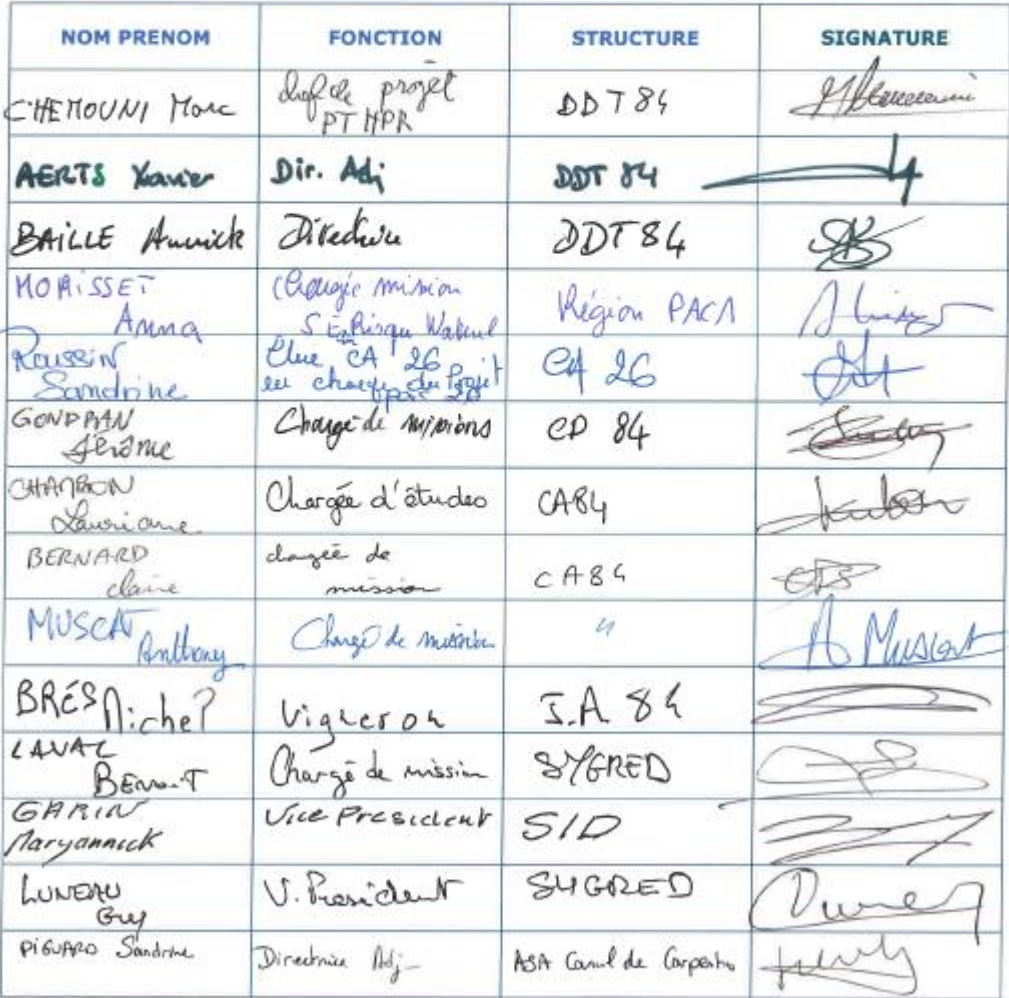 NOM PRENOM FONCTION STRUCTURE SIGNATURE
CHEMOUNI Marc chef de projet PT HPR DDT84
AERTS Xavier Dir. Adj DDT 84
BAILLE Annick Directrice DDT84
MORISSET Anna Chargée mission Région PACA
ROUSSIN Sandrine Elue CA 26 en charge du Projet CA 26
GONDRAN Jérôme Chargé de missions CD 84
CHAMBON Lauriane Chargée d'études CA84
BERNARD Claire chargée de mission CA84
MUSCAT Anthony Chargé de mission " A Muscat
BRÉS Michel Vigneron J.A. 84
LAVAL Benoit Chargé de mission SYGRED
GARIN Maryannick Vice President SID
LUNEAU Guy V. President SYGRED
PIGUARD Sandrine Directrice Adj ASA Canal de Carpentras